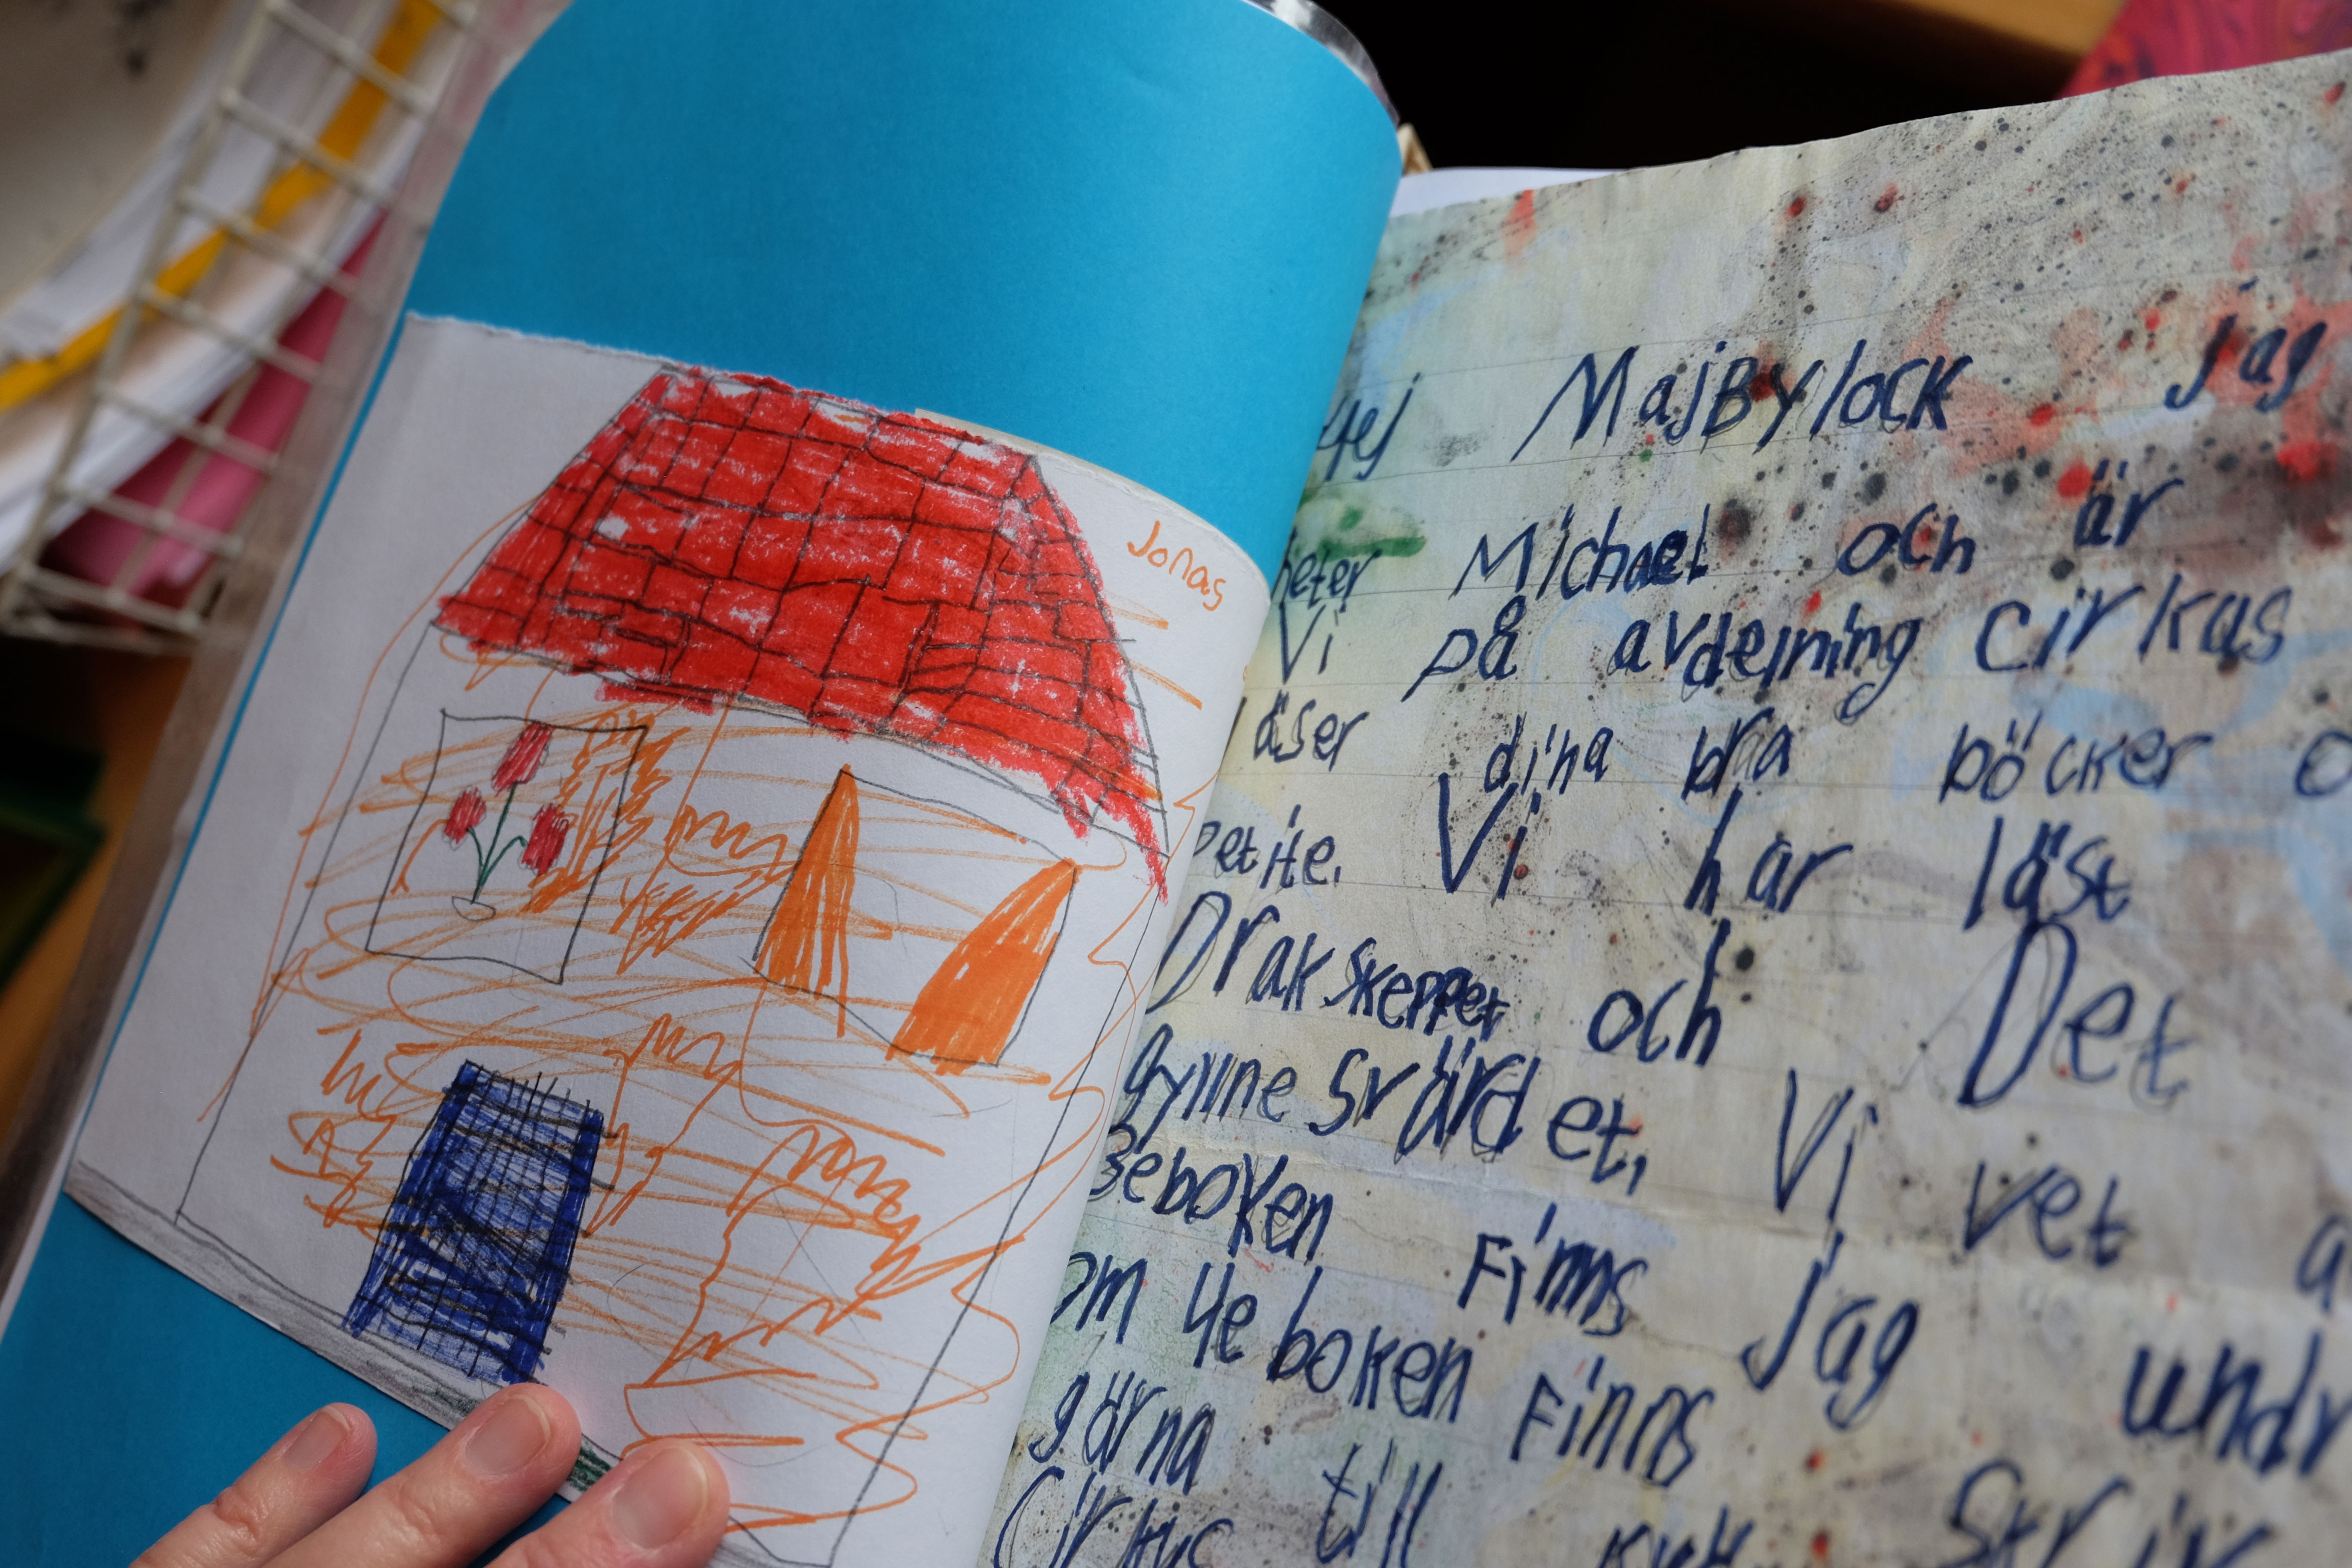 Jonas
Hej MajBylock Jag
heter Michael och är
Vi på avdelning Cirkus
läser dina bra böcker o
Petite. Vi har läst
Drakskeppet och Det
gyllne svärdet, Vi vet a
Beboken Finns Jag undr
om 4e boken Finns
gärna till Skriv
Cirkus